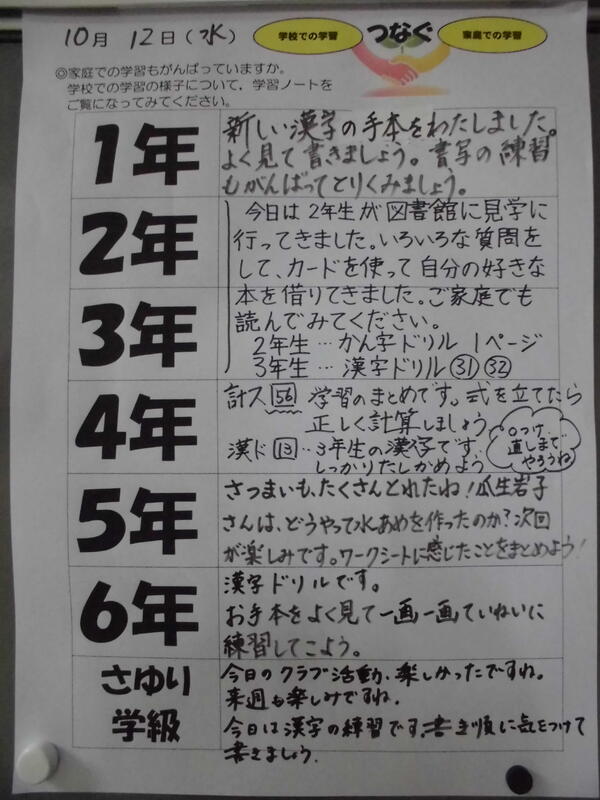 10月 12日(水)
学校での学習 つなぐ 家庭での学習
◎家庭での学習もがんばっていますか。
学校での学習の様子について，学習ノートを
ご覧になってみてください。
1年
新しい漢字の手本をわたしました。
よく見て書きましょう。書写の練習
もがんばってとりくみましょう。
2年
3年
今日は2年生が図書館に見学に
行ってきました。いろいろな質問を
して、カードを使って自分の好きな
本を借りてきました。ご家庭でも
読んでみてください。
2年生…かん字ドリル 1ページ
3年生…漢字ドリル㉛㉜
4年
計ス56 学習のまとめです。式を立てたら
正しく計算しましょう
漢ド13…3年生の漢字です。
しっかりたしかめよう
○つけ、
直しまで
やろうね
5年
さつまいも、たくさんとれたね！瓜生岩子
さんは、どうやって水あめを作ったのか？次回
が楽しみです。ワークシートに感じたことをまとめよう！
6年
漢字ドリルです。
お手本をよく見て一画一画ていねいに
練習してこよう。
さゆり
学級
今日のクラブ活動、楽しかったですね。
来週も楽しみですね。
今日は漢字の練習です。書き順に気をつけて
書きましょう。